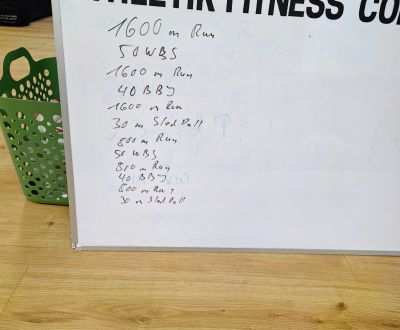 FITNESS CO
1600 m Run
50 WBS
1600 m Run
40 BBJ
1600 m Run
30 m Sled Pull
800 m Run
50 WBS
800 m Run
40 BBJ
800 m Run
30 m Sled Pull